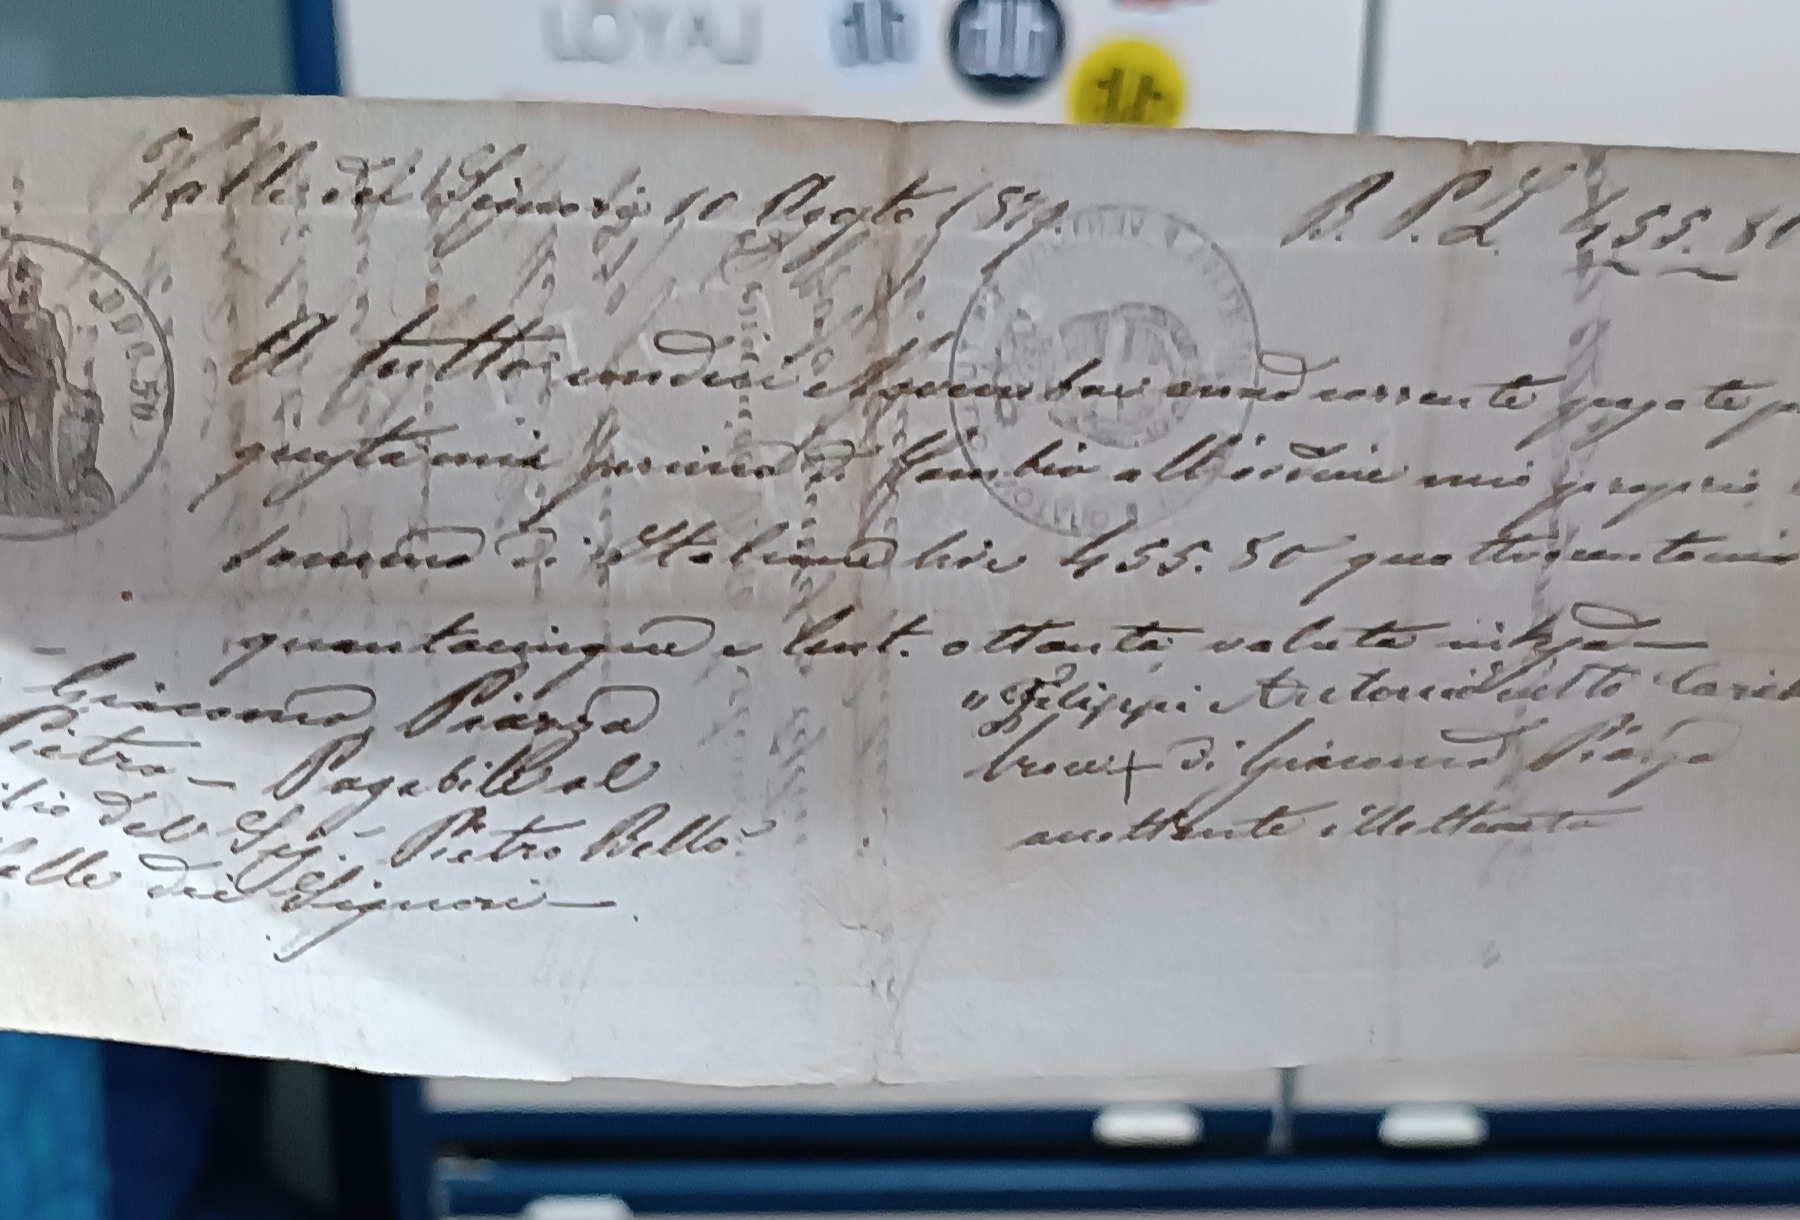 LOYAL
Valle dei Signori 10 Agosto 187
B. P. L. 455. 80
DDC. 50.
A tutto undici Novembre anno corrente pagate p
questa mia prima di Cambio all'ordine mio proprio
somma di Italiane lire 455. 80 quattrocento
quantacinque e Cent. ottanta valuta
Giacomo Piazza
Pietro — Pagabile al
ilio del Sig. Pietro Bello
Valle dei Signori —
" Filippi Antonio
croce + di Giacomo Piazza
accettante illetterato